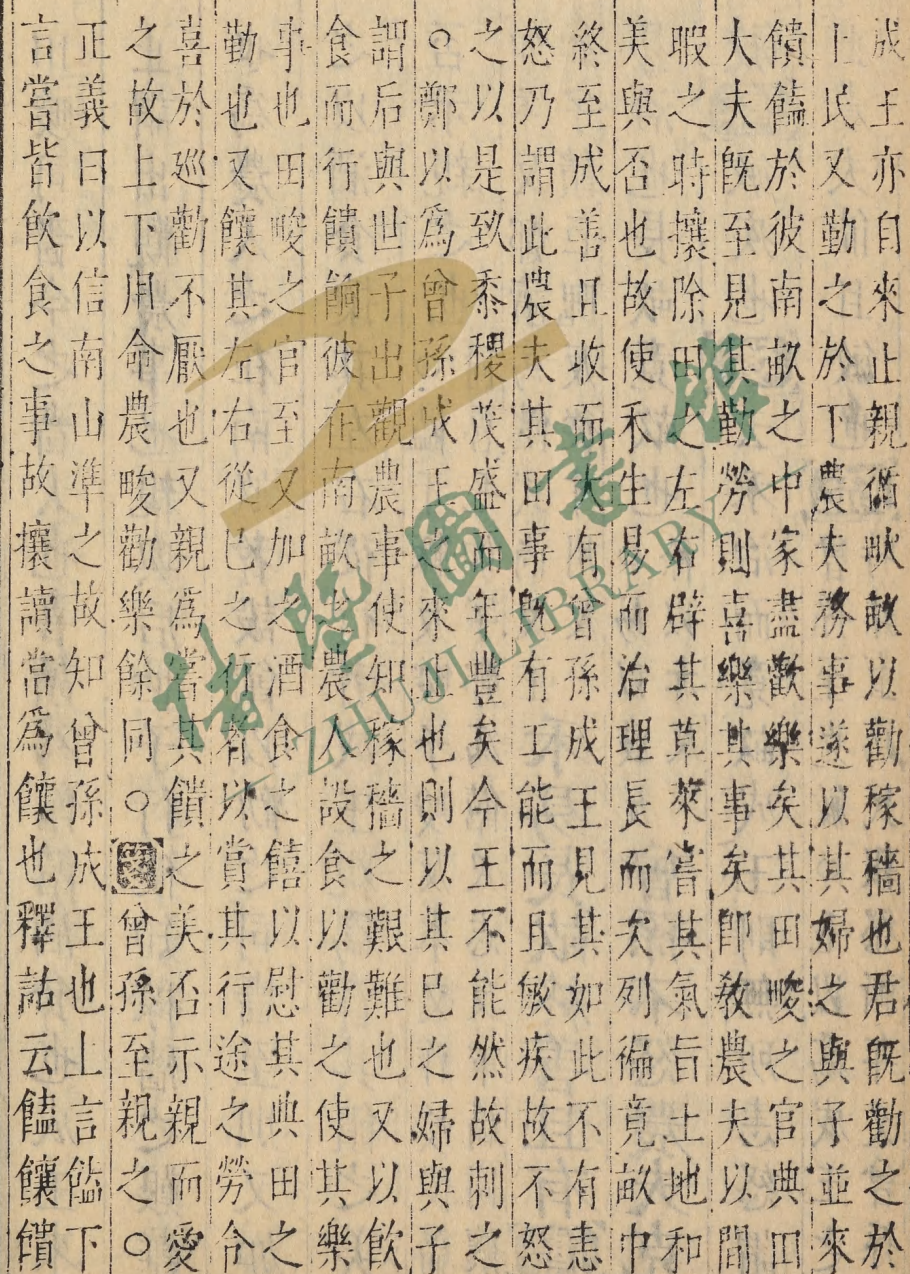 成王亦自來止親循畎畝以勸稼穡也君既勸之於
上民又勤之於下農夫務事遂以其婦之與子並來
饋饁於彼南畝之中家盡歡樂矣其田畯之官典田
大夫既至見其勤勞則喜樂其事矣即教農夫以間
暇之時攘除田之左右辟其草萊嘗其氣旨土地和
美與否也故使禾生易而治理長而次列徧竟畝中
終至成善且收而大有曾孫成王見其如此不有恚
怒乃謂此農夫其田事既有工能而且敏疾故不怒
之以是致黍稷茂盛而年豐矣今王不能然故刺之
○鄭以為曾孫成王之來止也則以其已之婦與子
謂后與世子出觀農事使知稼穡之艱難也又以飲
食而行饋餉彼在南畝之農人設食以勸之使其樂
事也田畯之官至又加之酒食之饎以慰其典田之
勤也又饟其左右從已之行者以賞其行途之勞令
喜於巡勸不厭也又親為嘗其饋之美否示親而愛
之故上下用命農畯勸樂餘同○箋曾孫至親之○
正義曰以信南山準之故知曾孫成王也上言饁下
言嘗皆飲食之事故攘讀當為饟也釋詁云饁饟饋
諸暨圖書館
ZHUJI LIBRARY